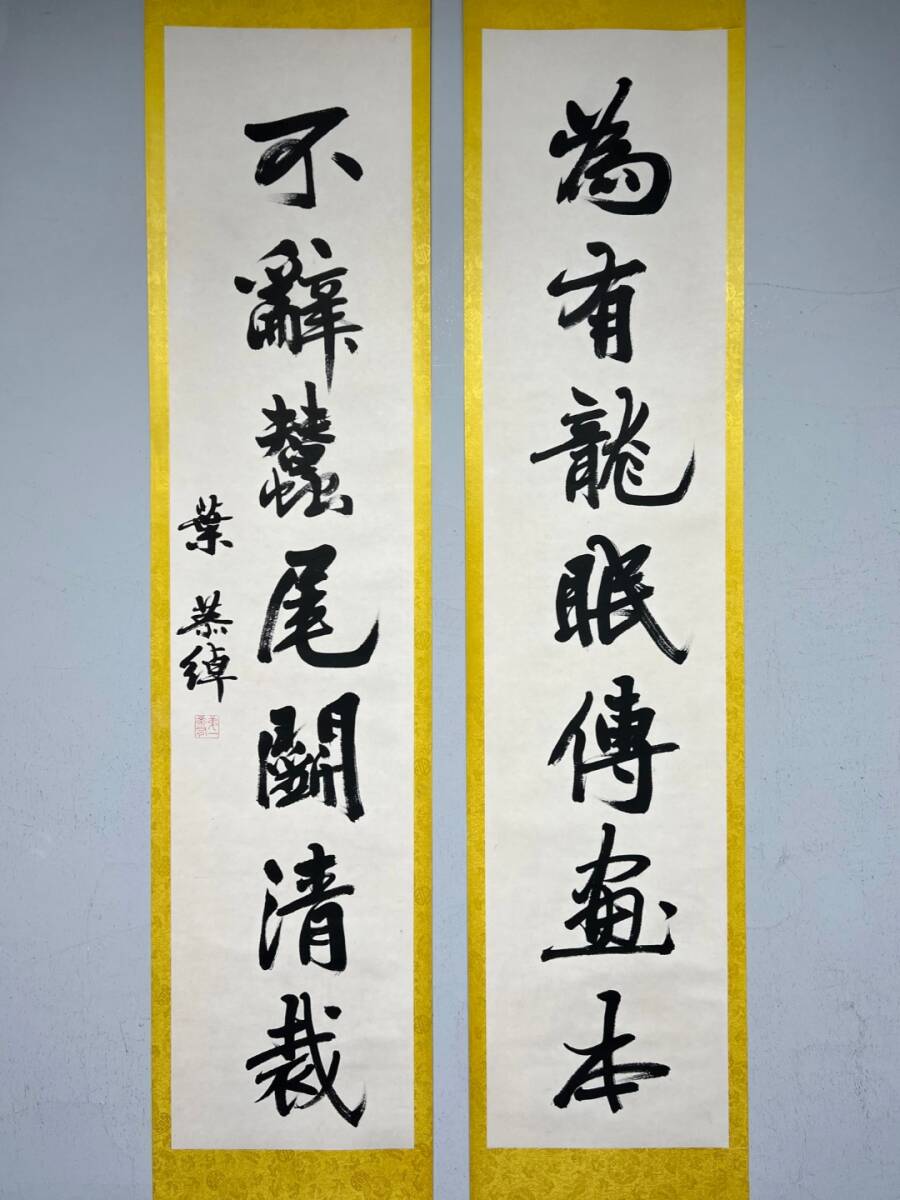 為有龍眠傳畫本
不辭蠆尾鬭清裁
葉恭綽